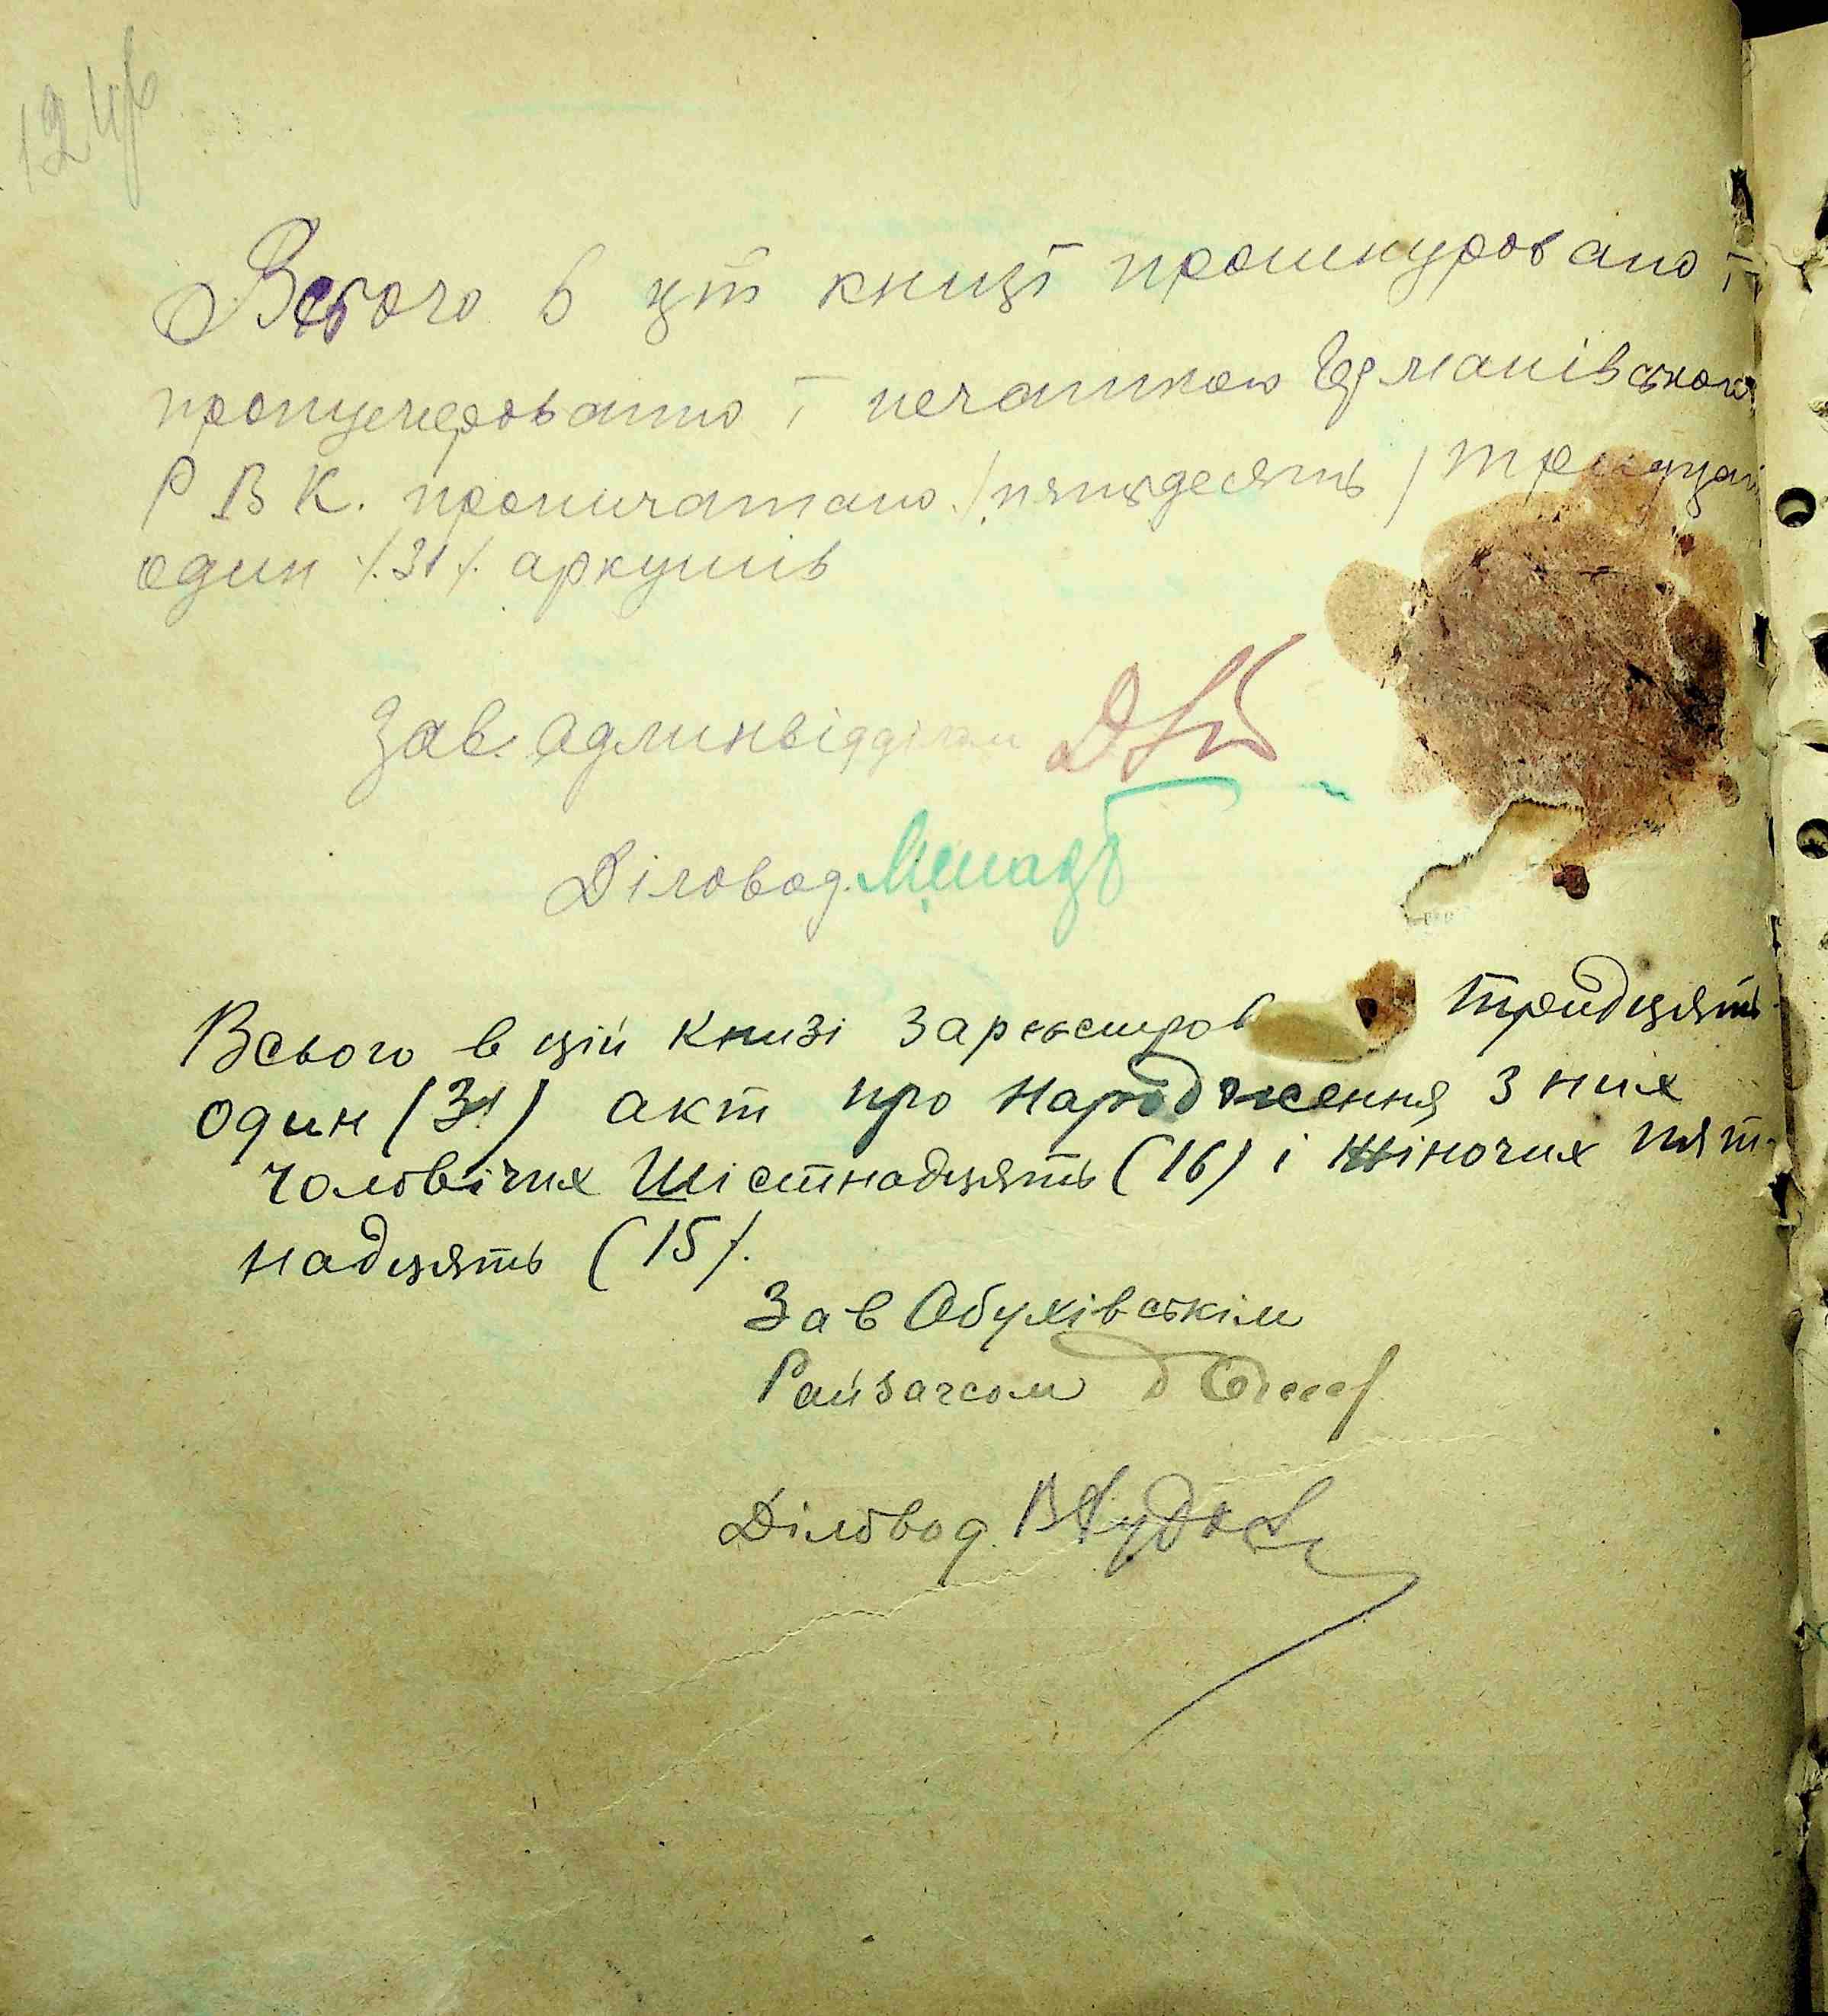 Всього в цій книзі прошнуровано і
пронумеровано і печаткою Германівського
РВК. пропичатано /пятьдесять/ тридцять
один /.31/. аркушів
Зав. адмінвідділом
Діловод.
Всього в цій книзі Зареєстров тридцять
один (31) акт про народження з них
чоловічих Шістнадцять (16) і жіночих пят-
надцять (15/.
Зав Обухівскім
Райзагсом
Діловод.